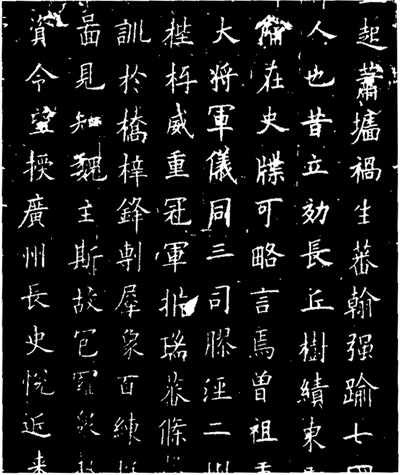 起蕭墻禍生蕃翰强踰七
人也昔立効長丘樹績東
在史牒可略言焉曾祖
大将軍儀同三司膠涇二州
威重冠軍瑞蕃條
訓於橋梓鋒剸犀象百練
啚見知魏主斯故包羅衆
資令望授廣州長史悦近来